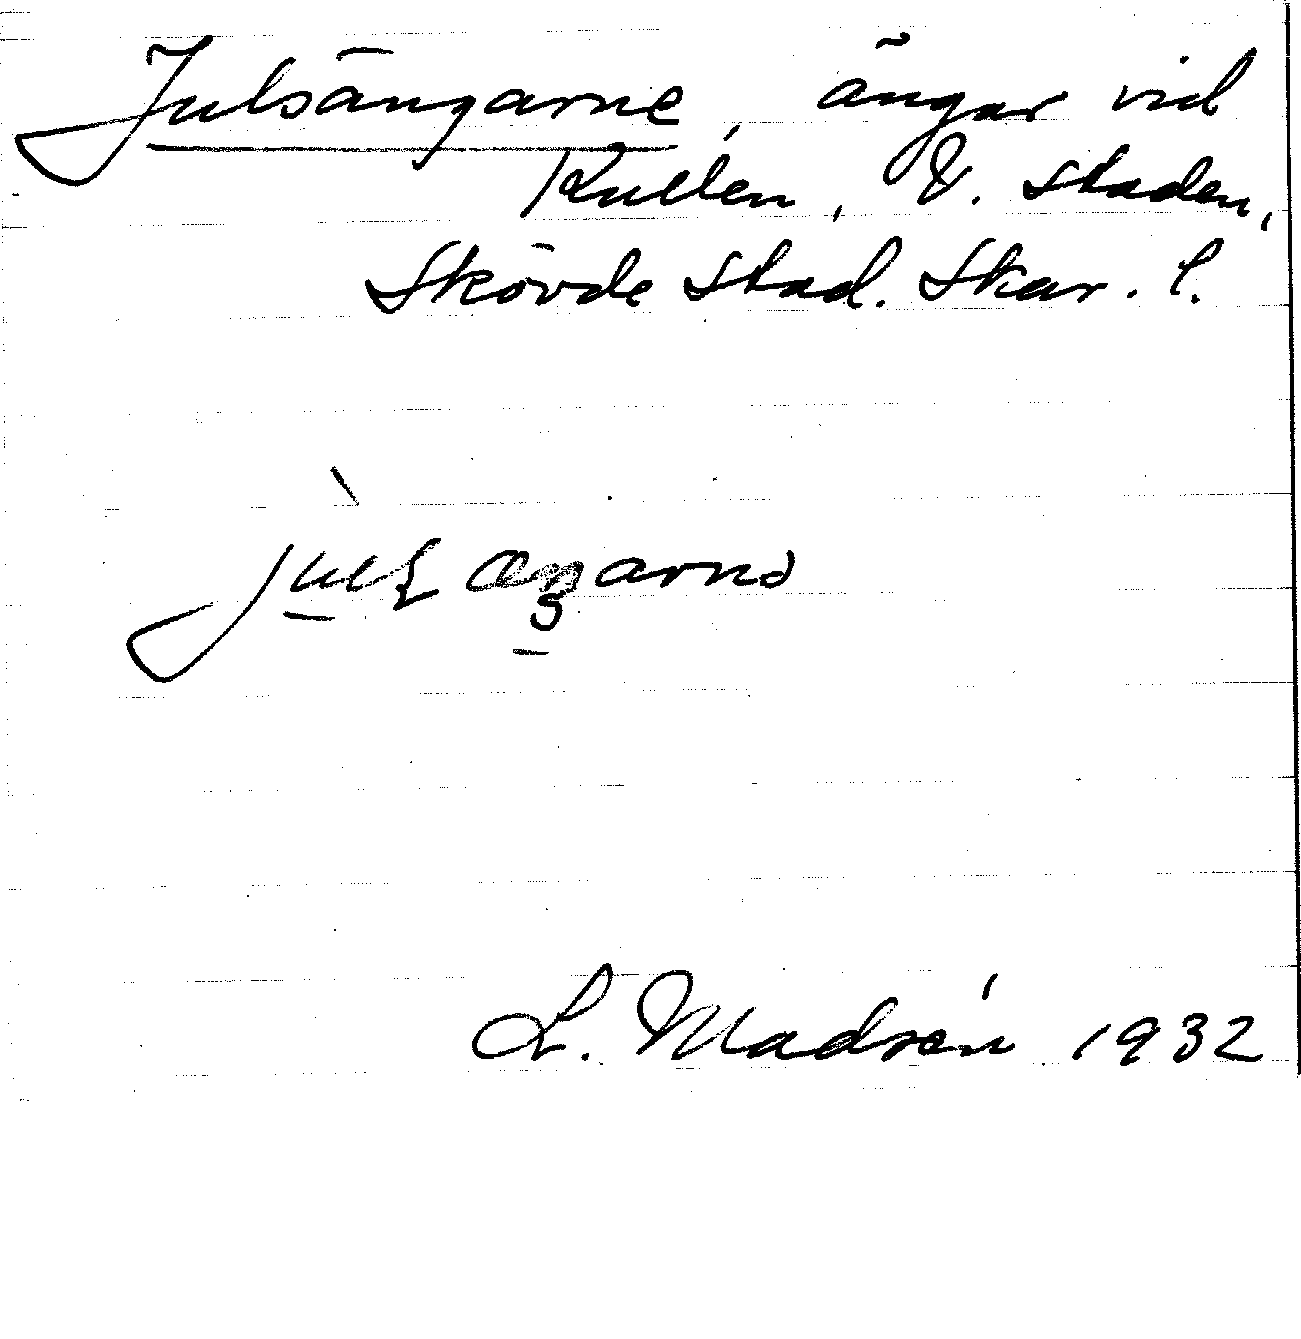 Julsängarne, ängar vid
Kullen, V. Staden,
Skövde stad. Skar. l.
L. Madsén 1932